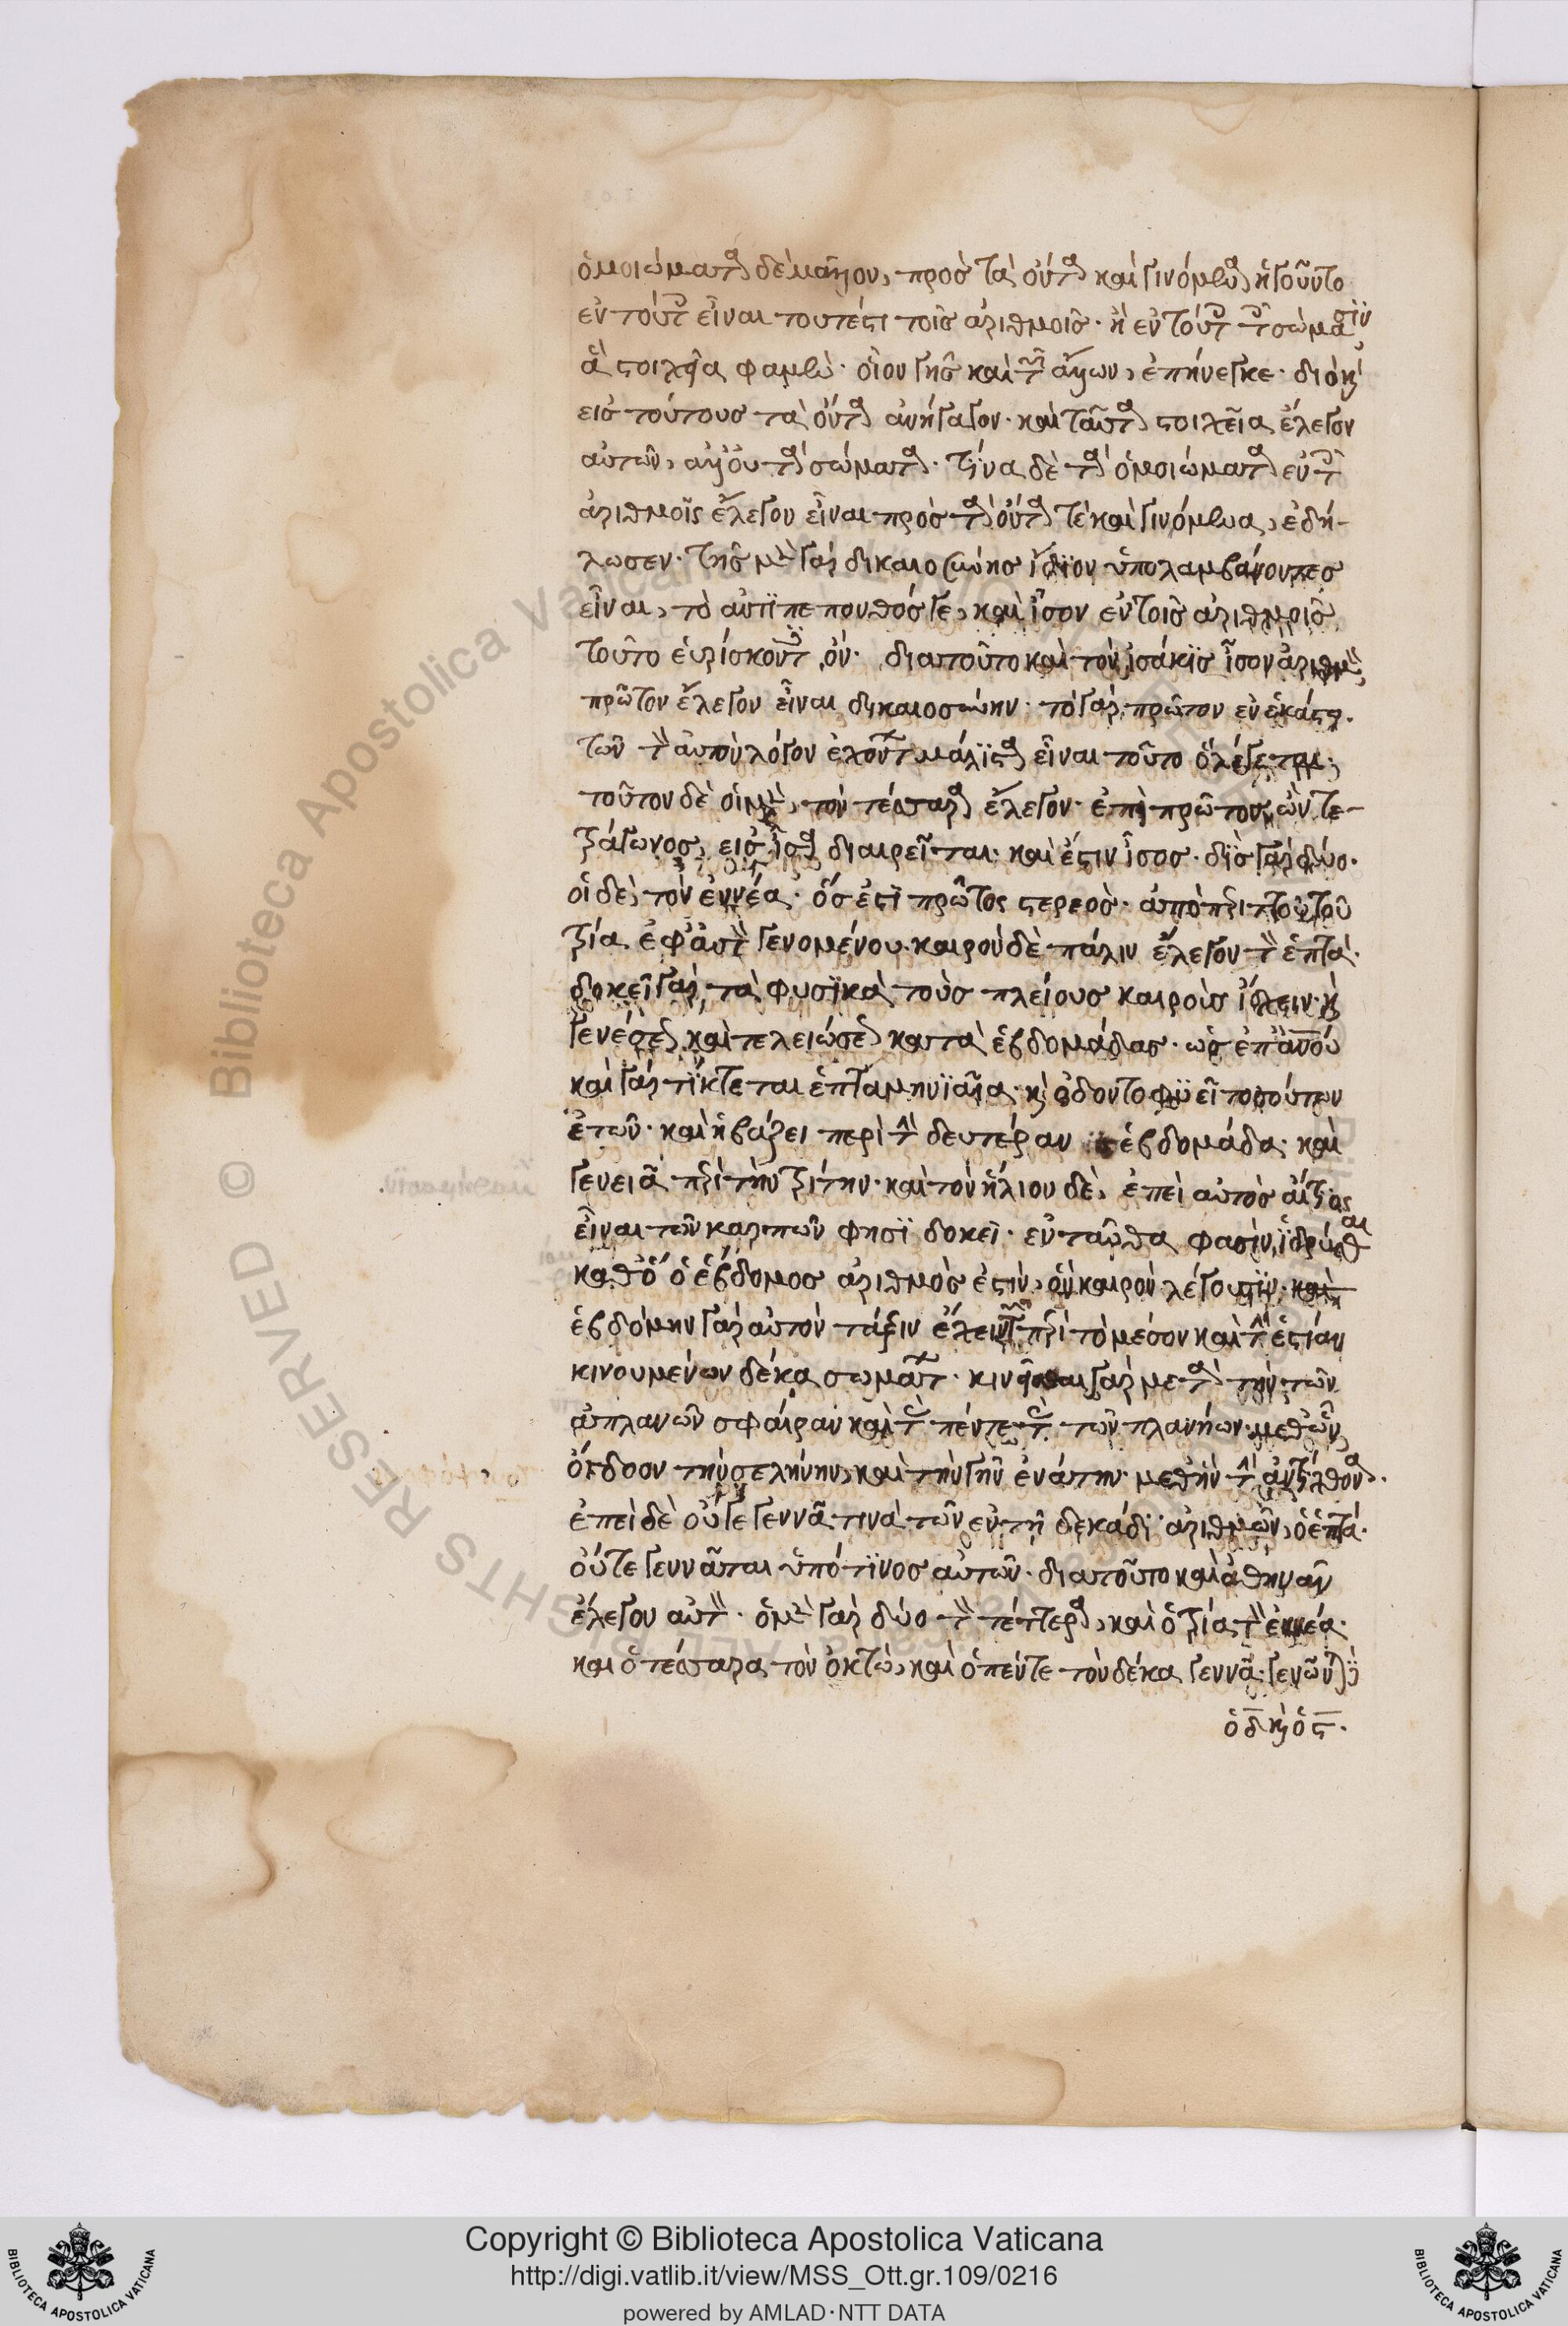 ὁμοιώματα δὲ μᾶλλον, πρὸς τὰ ὄντα καὶ γινόμενα ἡγοῦντο
ἐν τούτοις εἶναι τουτέστι τοῖς ἀριθμοῖς· ἢ ἐν τούτοις τοῖς σώμασιν
ἃ στοιχεῖα φαμέν· οἷον γῆς καὶ τῶν ἄλλων, ἐπήνεγκε· διὸ καὶ
εἰς τούτους τὰ ὄντα ἀνήγαγον· καὶ ταῦτα στοιχεῖα ἔλεγον
αὐτῶν, ἀλλ' οὐ τὰ σώματα· τίνα δὲ τὰ ὁμοιώματα ἐν τοῖς
ἀριθμοῖς ἔλεγον εἶναι πρὸς τὰ ὄντα τὲ καὶ γινόμενα, ἐδή-
λωσεν· τῆς μὲν γὰρ δικαιοσύνης ἴδιον ὑπολαμβάνοντες
εἶναι, τὸ ἀντιπεπονθός τε, καὶ ἴσον ἐν τοῖς ἀριθμοῖς
τοῦτο εὑρίσκοντες ὄν· διατοῦτο καὶ τὸν ἰσάκις ἴσον ἀριθμὸν
πρῶτον ἔλεγον εἶναι δικαιοσύνην· τὸ γὰρ πρῶτον ἐν ἑκάστῳ
τῶν τὸν αὐτὸν λόγον ἐχόντων μάλιστα εἶναι τοῦτο ὃ λέγεται·
τοῦτον δὲ οἱ μὲν, τὸν τέσσαρα ἔλεγον· ἐπεὶ πρῶτος ὢν τε-
τράγωνος, εἰς ἴσα διαιρεῖται· καὶ ἔστιν ἴσος· δὶς γὰρ δύο·
οἱ δὲ, τὸν ἐννέα· ὅς ἐστι πρῶτος στερεὸς· ἀπὸ περιττοῦ τοῦ
τρία ἐφ' ἑαυτὸν γενομένου· καιρὸν δὲ πάλιν ἔλεγον τὸν ἑπτά·
δοκεῖ γὰρ τὰ φυσικὰ τοὺς τελείους καιροὺς ἴσχειν· καὶ
γενέσεως καὶ τελειώσεως κατὰ ἑβδομάδας· ὡς ἐπ' ἀνθρώπου
καὶ γὰρ τίκτεται ἑπταμηνιαῖα· καὶ ὀδοντοφυεῖ τοσούτων
ἐτῶν· καὶ ἡβάσκει περὶ τὴν δευτέραν ἑβδομάδα· καὶ
γενειᾷ περὶ τὴν τρίτην· καὶ τὸν ἥλιον δὲ, ἐπεὶ αὐτὸς αἴτιος
εἶναι τῶν καρπῶν φησὶ δοκεῖ· ἐνταῦθα φασὶν ἱδρύσθαι
καθ' ὃ ὁ ἕβδομος ἀριθμὸς ἐστὶν, ὃν καιρὸν λέγουσιν·
ἑβδόμην γὰρ αὐτὸν τάξιν ἔχειν τῶν περὶ τὸ μέσον καὶ τὴν ἑστίαν
κινουμένων δέκα σωμάτων· κινεῖσθαι γὰρ μετὰ τὴν τῶν
ἀπλανῶν σφαῖραν καὶ τὰς πέντε τὰς τῶν πλανήτων· μεθ' ὃν
ὄγδοον τὴν σελήνην, καὶ τὴν γῆν ἐνάτην· μεθ' ἣν τὴν ἀντίχθονα·
ἐπεὶ δὲ οὔτε γεννᾷ τινὰ τῶν ἐν τῇ δεκάδι ἀριθμῶν, ὁ ἑπτά·
οὔτε γεννᾶται ὑπό τινος αὐτῶν· διατοῦτο καὶ ἀθηνᾶν
ἔλεγον αὐτὸν· ὁ μὲν γὰρ δύο τὸν τέτταρα, καὶ ὁ τρία τὸν ἐννέα·
καὶ ὁ τέσσαρα τὸν ὀκτώ, καὶ ὁ πέντε τὸν δέκα γεννᾷ· γεννῶνται δὲ
ὁ δ̅ καὶ ὁ ϛ̅·
Copyright © Biblioteca Apostolica Vaticana
http://digi.vatlib.it/view/MSS_Ott.gr.109/0216
powered by AMLAD·NTT DATA
BIBLIOTECA APOSTOLICA VATICANA
BIBLIOTECA APOSTOLICA VATICANA
© Biblioteca Apostolica Vaticana
ALL RIGHTS RESERVED